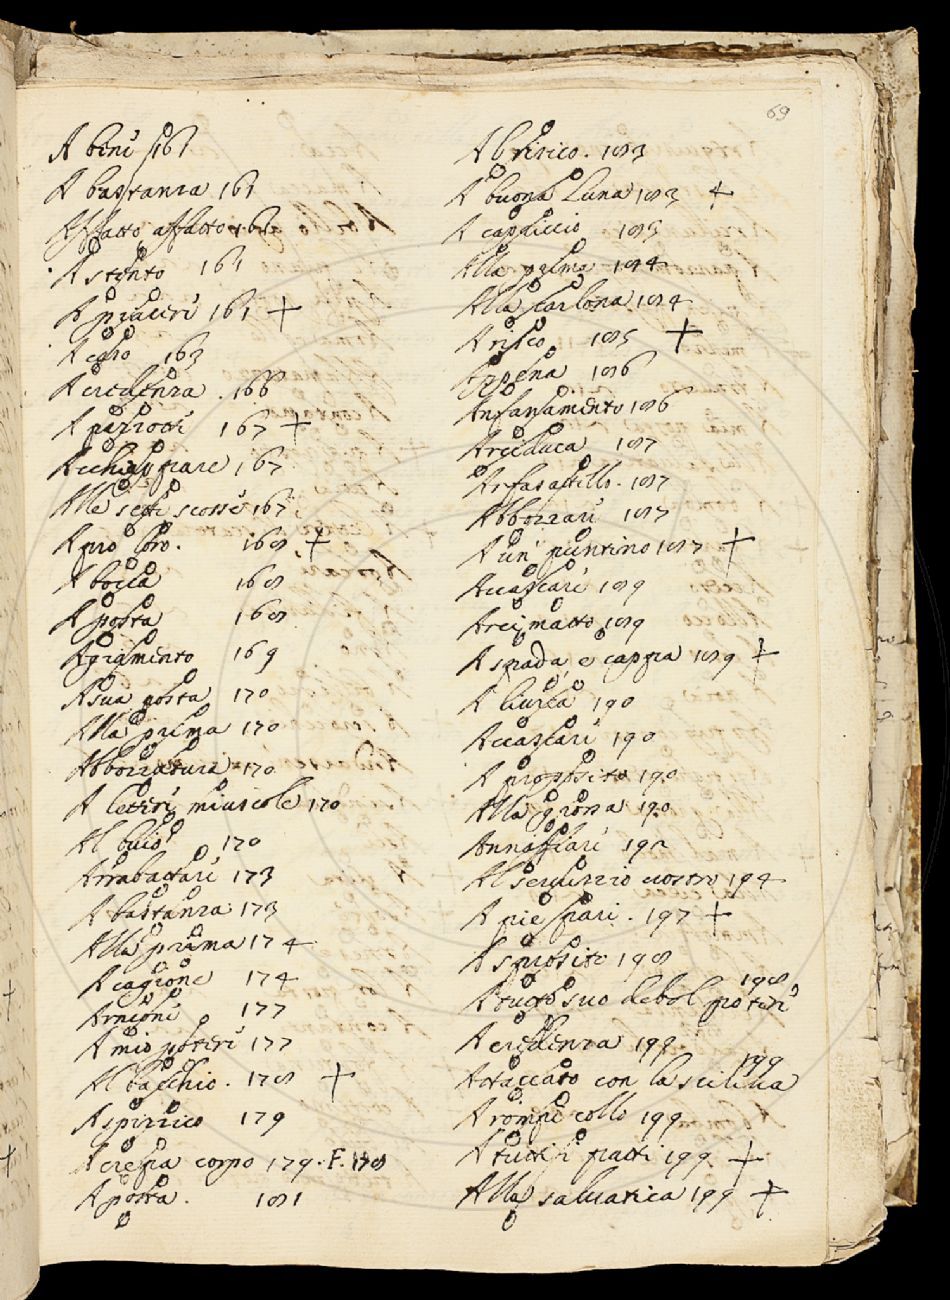 69
A beni 161
A bastanza 161
Affatto affatto 161
A stento 161
A piaceri 161 +
A caso 163
A credenza . 166
A pezzotti 167 +
Acchiappare 167
Alle sette scosse 167
A pro loro. 168 +
A bocca 168
A posta 168
Agiamento 169
A sua posta 170
Alla prima 170
Abborratura 170
A lettere maiuscole 170
Al buio 170
Arrabattare 173
A bastanza 173
Alla prima 174
A cagione 174
Arnioni 177
A mio potere 177
Al bacchio . 178 +
A spizzico 179
A crepa corpo 179. F. 178
A posta . 181
Al 183
A buona Luna 183 +
A capriccio 183
Alla peggio 184
Alla carlona 184
A risco 185 +
Appena 186
Anfanamento 186
Arciduca 187
Arfasatello . 187
Abbozzare 187
A un puntino 187 +
Accascare 189
Arcimatto 189
A spada, e cappa 189 +
A liurea 190
Accascare 190
A proposito 190
Alla grossa 190
Annaffiare 192
Al seruizio uostro 194
A pie pari . 197 +
A sproposito 198
A tutto suo debol potere 198
A credenza 199
Attaccato con la sciliua 199
A rompi collo 199
A tutti i patti 199 +
Alla saluatica 199 +